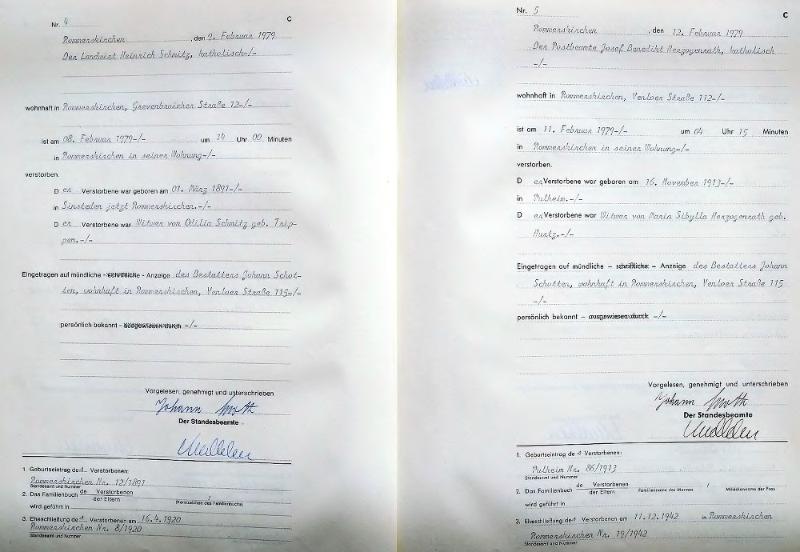 Nr. 4
C
Rommerskirchen, den 9. Februar 1979
Der Landwirt Heinrich Schmitz, katholisch-/-
wohnhaft in Rommerskirchen, Grevenbroicher Straße 12-/-
ist am 08. Februar 1979-/- um 14 Uhr 00 Minuten
in Rommerskirchen in seiner Wohnung-/-
verstorben.
D er Verstorbene war geboren am 01. März 1891-/-
in Sinsteden jetzt Rommerskirchen.-/-
D er Verstorbene war Witwer von Odilia Schmitz geb. Trip-
pen.-/-
Eingetragen auf mündliche - schriftliche - Anzeige des Bestatters Johann Schot-
ten, wohnhaft in Rommerskirchen, Venloer Straße 115-/-
persönlich bekannt - ausgewiesen durch -/-
Vorgelesen, genehmigt und unterschrieben
Johann
Der Standesbeamte
1. Geburtseintrag des Verstorbenen:
Rommerskirchen Nr. 12/1891
Standesamt und Nummer
2. Das Familienbuch de Verstorbenen
der Eltern
wird geführt in
3. Eheschließung des Verstorbenen am 16.4.1920
Rommerskirchen Nr. 8/1920
Standesamt und Nummer
Nr. 5
C
Rommerskirchen, den 12. Februar 1979
Der Postbeamte Josef Benedikt Herzogenrath, katholisch
-/-
wohnhaft in Rommerskirchen, Venloer Straße 112-/-
ist am 11. Februar 1979-/- um 04 Uhr 15 Minuten
in Rommerskirchen in seiner Wohnung-/-
verstorben.
D er Verstorbene war geboren am 16. November 1913-/-
in Pulheim.-/-
D er Verstorbene war Witwer von Maria Sibylla Herzogenrath geb.
-/-
Eingetragen auf mündliche - schriftliche - Anzeige des Bestatters Johann
Schotten, wohnhaft in Rommerskirchen, Venloer Straße 115
-/-
persönlich bekannt - ausgewiesen durch -/-
Vorgelesen, genehmigt und unterschrieben
Johann
Der Standesbeamte
1. Geburtseintrag des Verstorbenen:
Pulheim Nr. 86/1913
Standesamt und Nummer
2. Das Familienbuch de Verstorbenen
der Eltern
wird geführt in
3. Eheschließung des Verstorbenen am 11.12.1942 in Rommerskirchen
Rommerskirchen Nr. 19/1942
Standesamt und Nummer